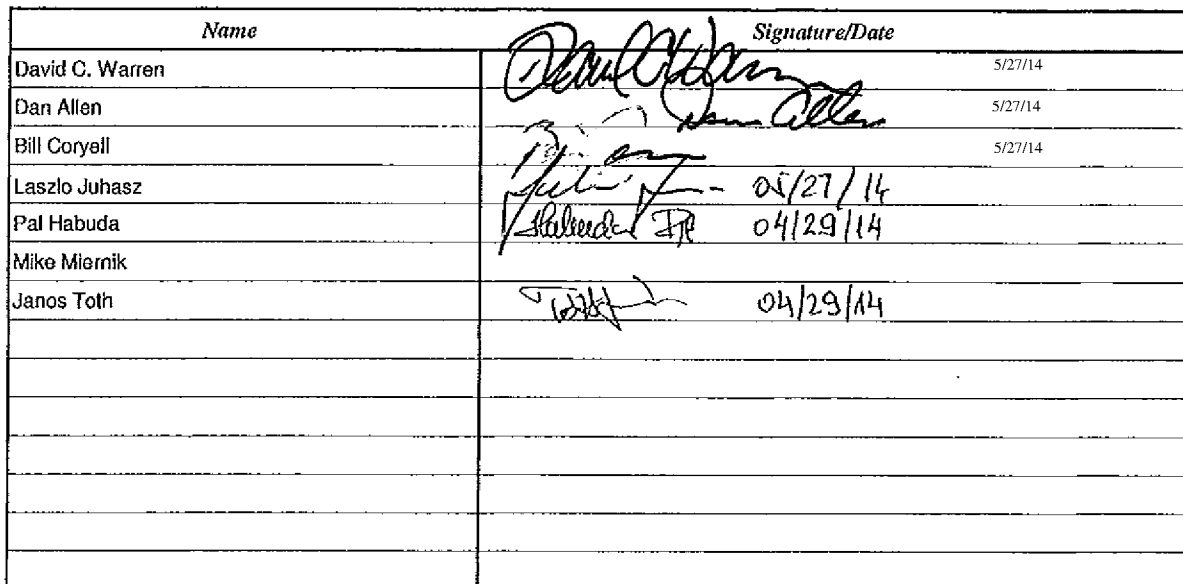 Name Signature/Date
David C. Warren 5/27/14
Dan Allen Dan Allen 5/27/14
Bill Coryell 5/27/14
Laszlo Juhasz 05/27/14
Pal Habuda Habuda Pál 04/29/14
Mike Miernik
Janos Toth 04/29/14